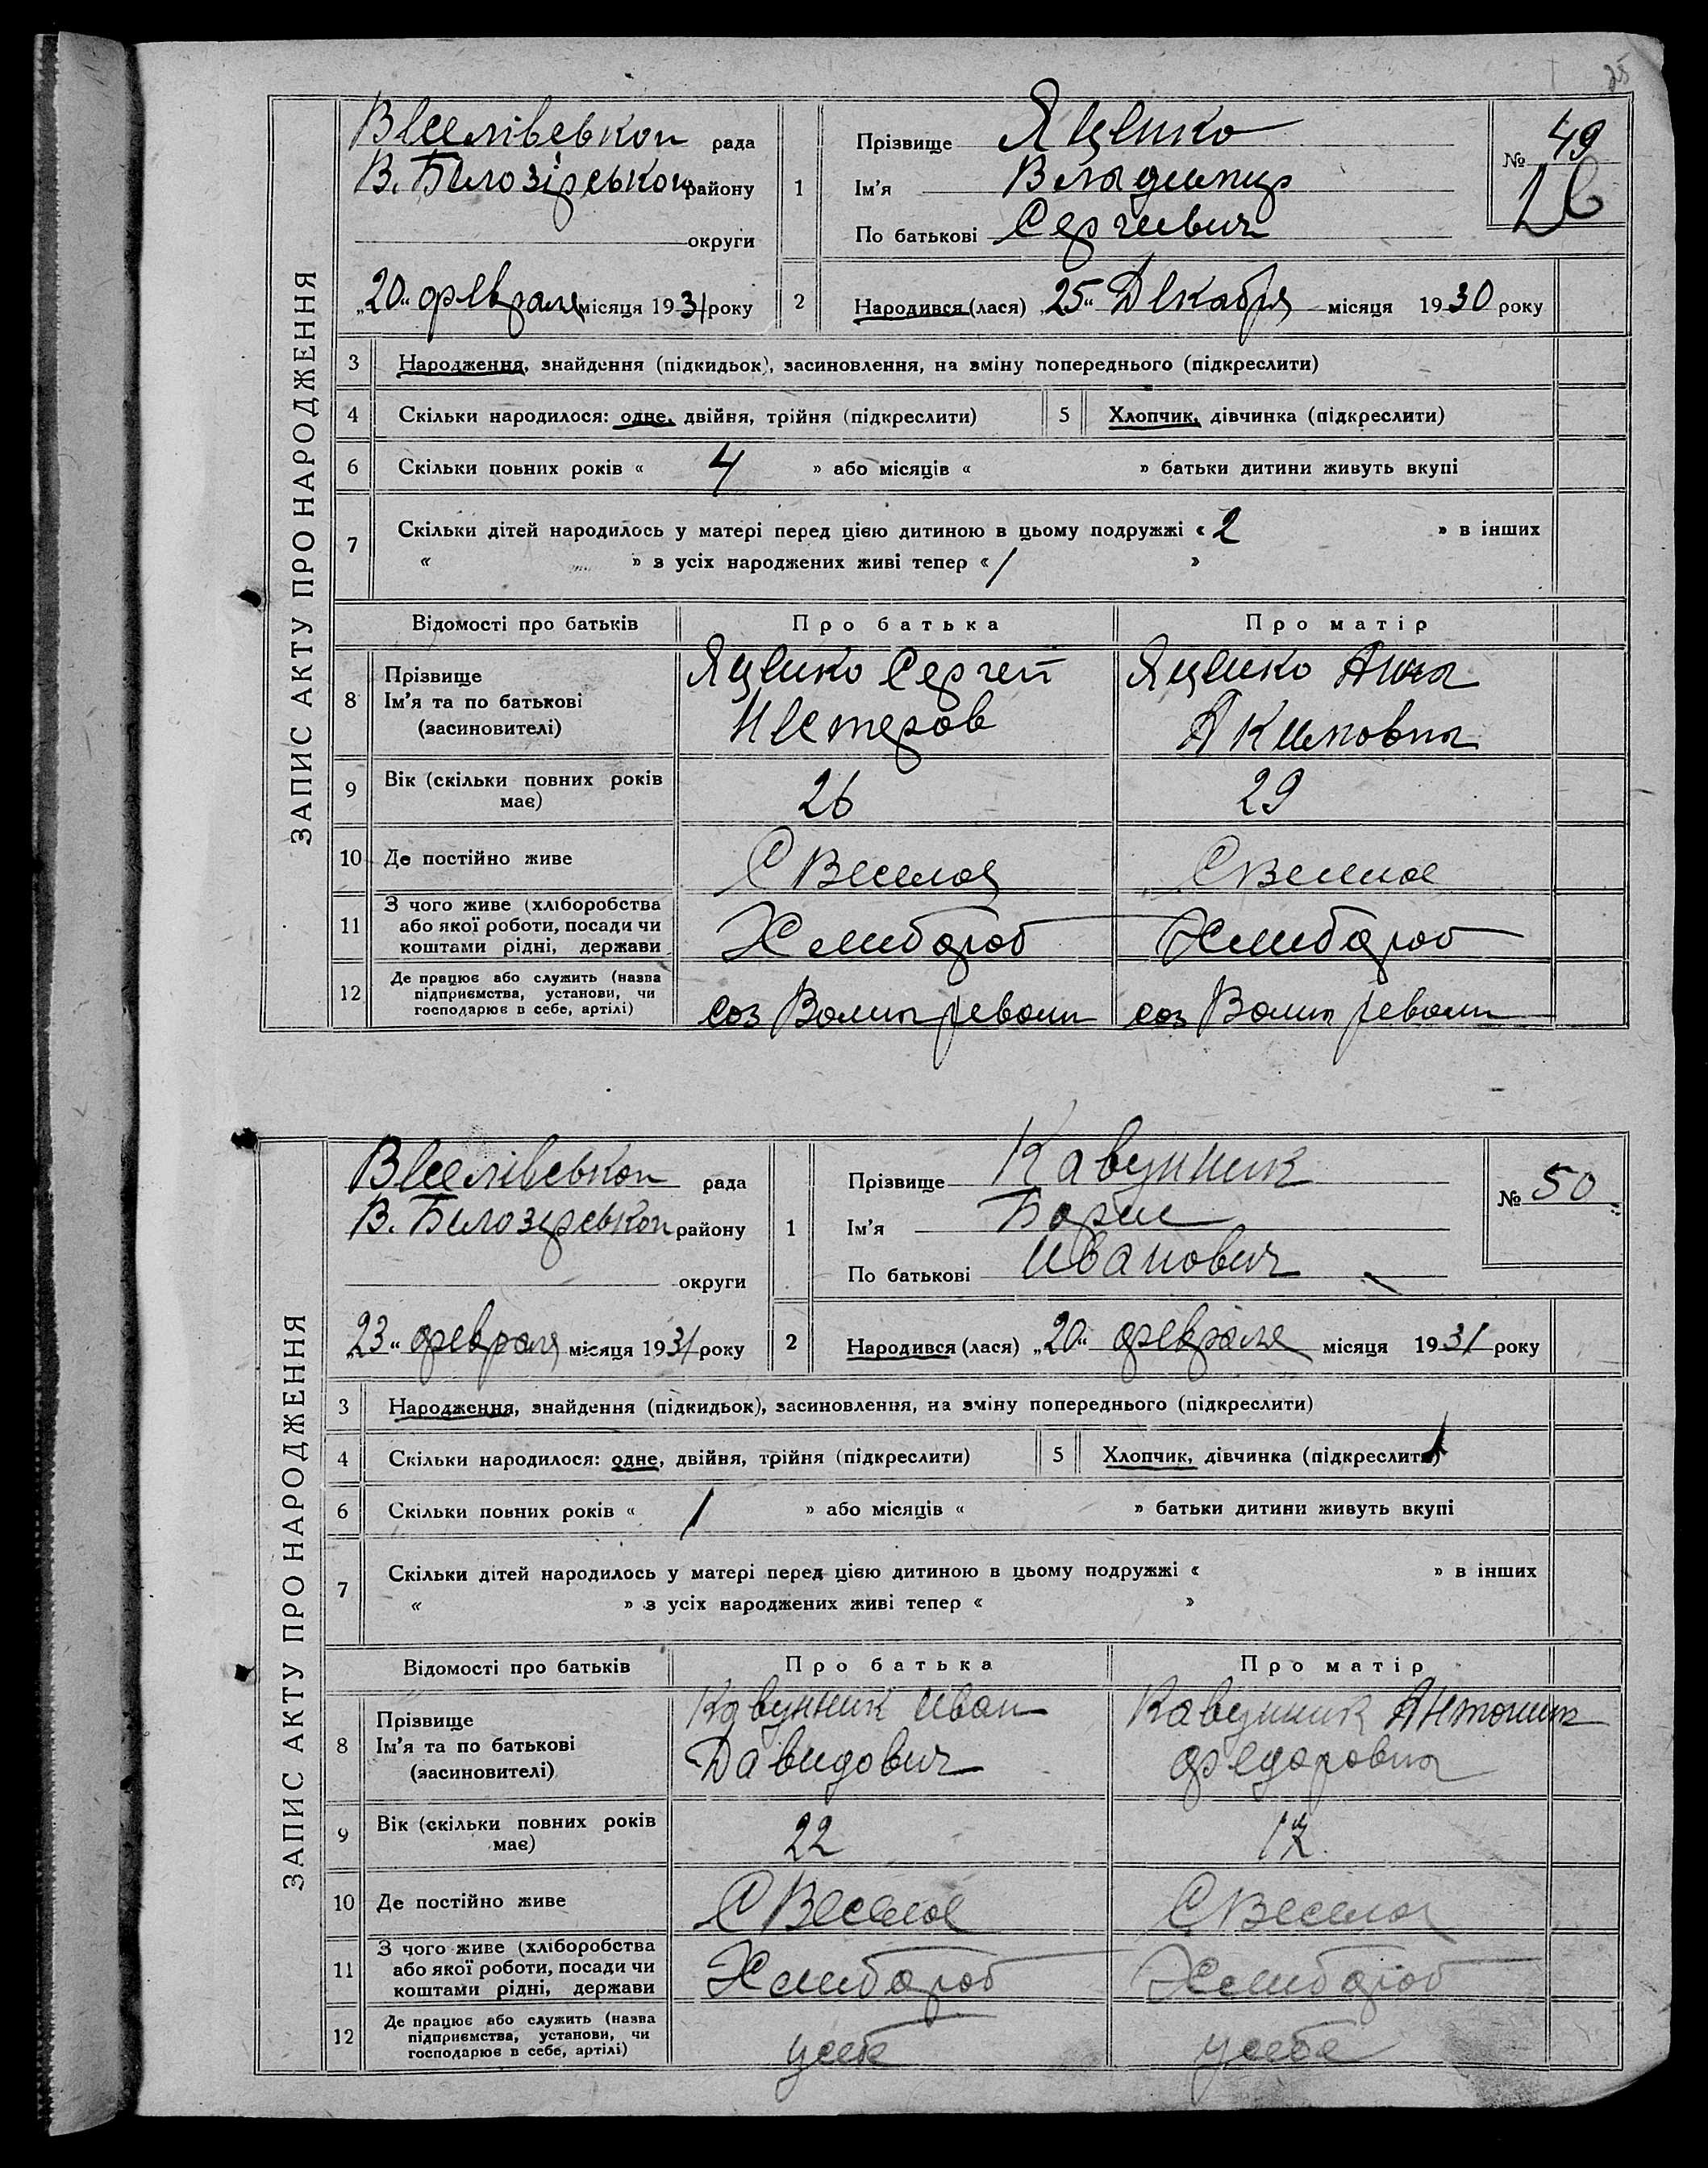 25
ЗАПИС АКТУ ПРО НАРОДЖЕННЯ
Веселівськои рада
В. Билозірськои району
округи
„20“ февраля місяця 1931 року
1
Прізвище Яценко
Ім'я Владимир
По батькові Сергеевич
№ 49
16
2
Народився (лася) „25“ Декабря місяця 1930 року
3 Народження, знайдення (підкидьок), засиновлення, на зміну попереднього (підкреслити)
4 Скільки народилося: одне, двійня, трійня (підкреслити) 5 Хлопчик, дівчинка (підкреслити)
6 Скільки повних років « 4 » або місяців « » батьки дитини живуть вкупі
7 Скільки дітей народилось у матері перед цією дитиною в цьому подружжі « 2 » в інших
« » з усіх народжених живі тепер « 1 »
Відомості про батьків Про батька Про матір
8 Прізвище Ім'я та по батькові (засиновителі)
Яценко Сергей Яценко Анна
Нестеров Акимовна
9 Вік (скільки повних років має) 26 29
10 Де постійно живе С Веселое С Веселое
11 З чого живе (хліборобства або якої роботи, посади чи коштами рідні, держави Хлибороб Хлибороб
12 Де працює або служить (назва підприємства, установи, чи господарює в себе, артілі) соз Волна револи соз Волна револи
ЗАПИС АКТУ ПРО НАРОДЖЕННЯ
Веселівськои рада
В. Билозірськои району
округи
„23“ февраля місяця 1931 року
1
Прізвище Кавунник
Ім'я Борис
По батькові Иванович
№ 50
2
Народився (лася) „20“ февраля місяця 1931 року
3 Народження, знайдення (підкидьок), засиновлення, на зміну попереднього (підкреслити)
4 Скільки народилося: одне, двійня, трійня (підкреслити) 5 Хлопчик, дівчинка (підкреслити)
6 Скільки повних років « 1 » або місяців « » батьки дитини живуть вкупі
7 Скільки дітей народилось у матері перед цією дитиною в цьому подружжі « » в інших
« » з усіх народжених живі тепер « »
Відомості про батьків Про батька Про матір
8 Прізвище Ім'я та по батькові (засиновителі)
Кавунник Иван Кавунник Антонина
Давидович Федоровна
9 Вік (скільки повних років має) 22
10 Де постійно живе С Веселое С Веселое
11 З чого живе (хліборобства або якої роботи, посади чи коштами рідні, держави Хлибороб Хлибороб
12 Де працює або служить (назва підприємства, установи, чи господарює в себе, артілі) усебе усебе